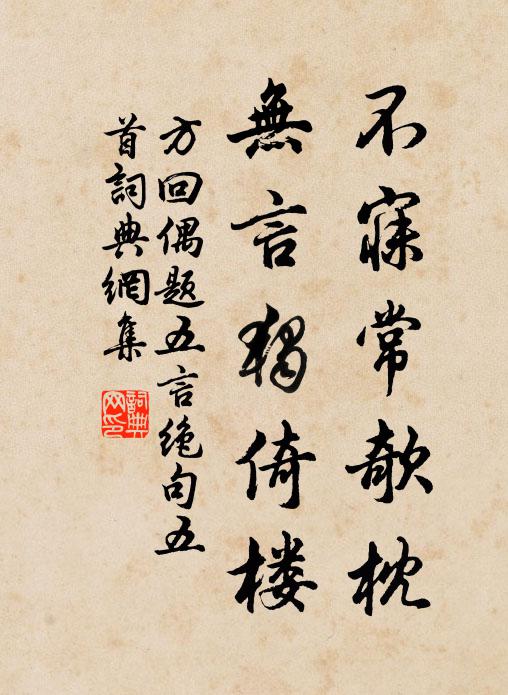 不寐常欹枕
無言獨倚楼
方回偶題五言绝句五
首詞典網集
詞典
网印